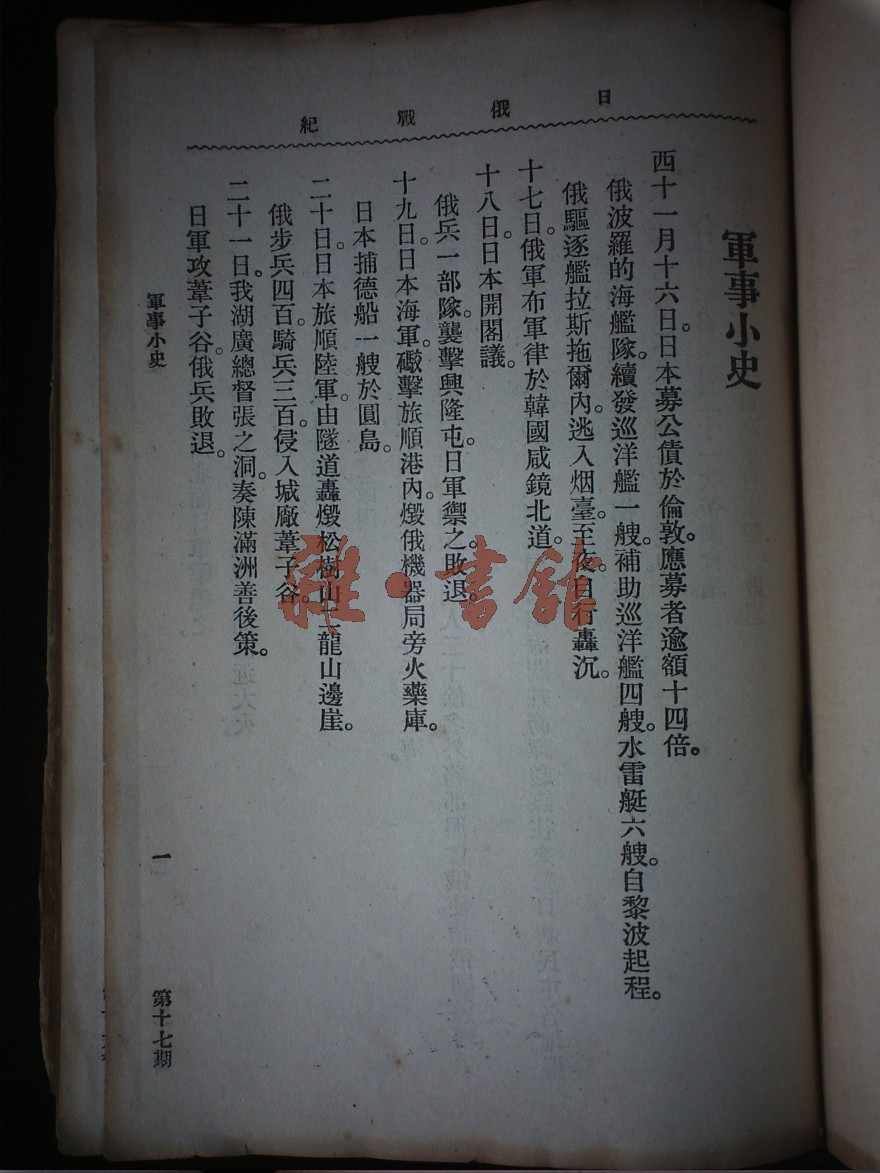 日俄戰紀
軍事小史
西十一月十六日。日本募公債於倫敦。應募者逾額十四倍。
俄波羅的海艦隊。續發巡洋艦一艘。補助巡洋艦四艘。水雷艇六艘。自黎波起程。
俄驅逐艦拉斯拖爾內。逃入烟臺。至夜。自行轟沉。
十七日。俄軍布軍律於韓國咸鏡北道。
十八日。日本開閣議。
俄兵一部隊。襲擊興隆屯。日軍禦之。敗退。
十九日。日本海軍。礮擊旅順港內。燬俄機器局旁火藥庫。
日本捕德船一艘於圓島。
二十日。日本旅順陸軍。由隧道轟燬松樹山二龍山邊崖。
俄步兵四百。騎兵三百。侵入城廠葦子谷。
二十一日。我湖廣總督張之洞。奏陳滿洲善後策。
日軍攻葦子谷。俄兵敗退。
軍事小史
一
第十七期
雜·書館